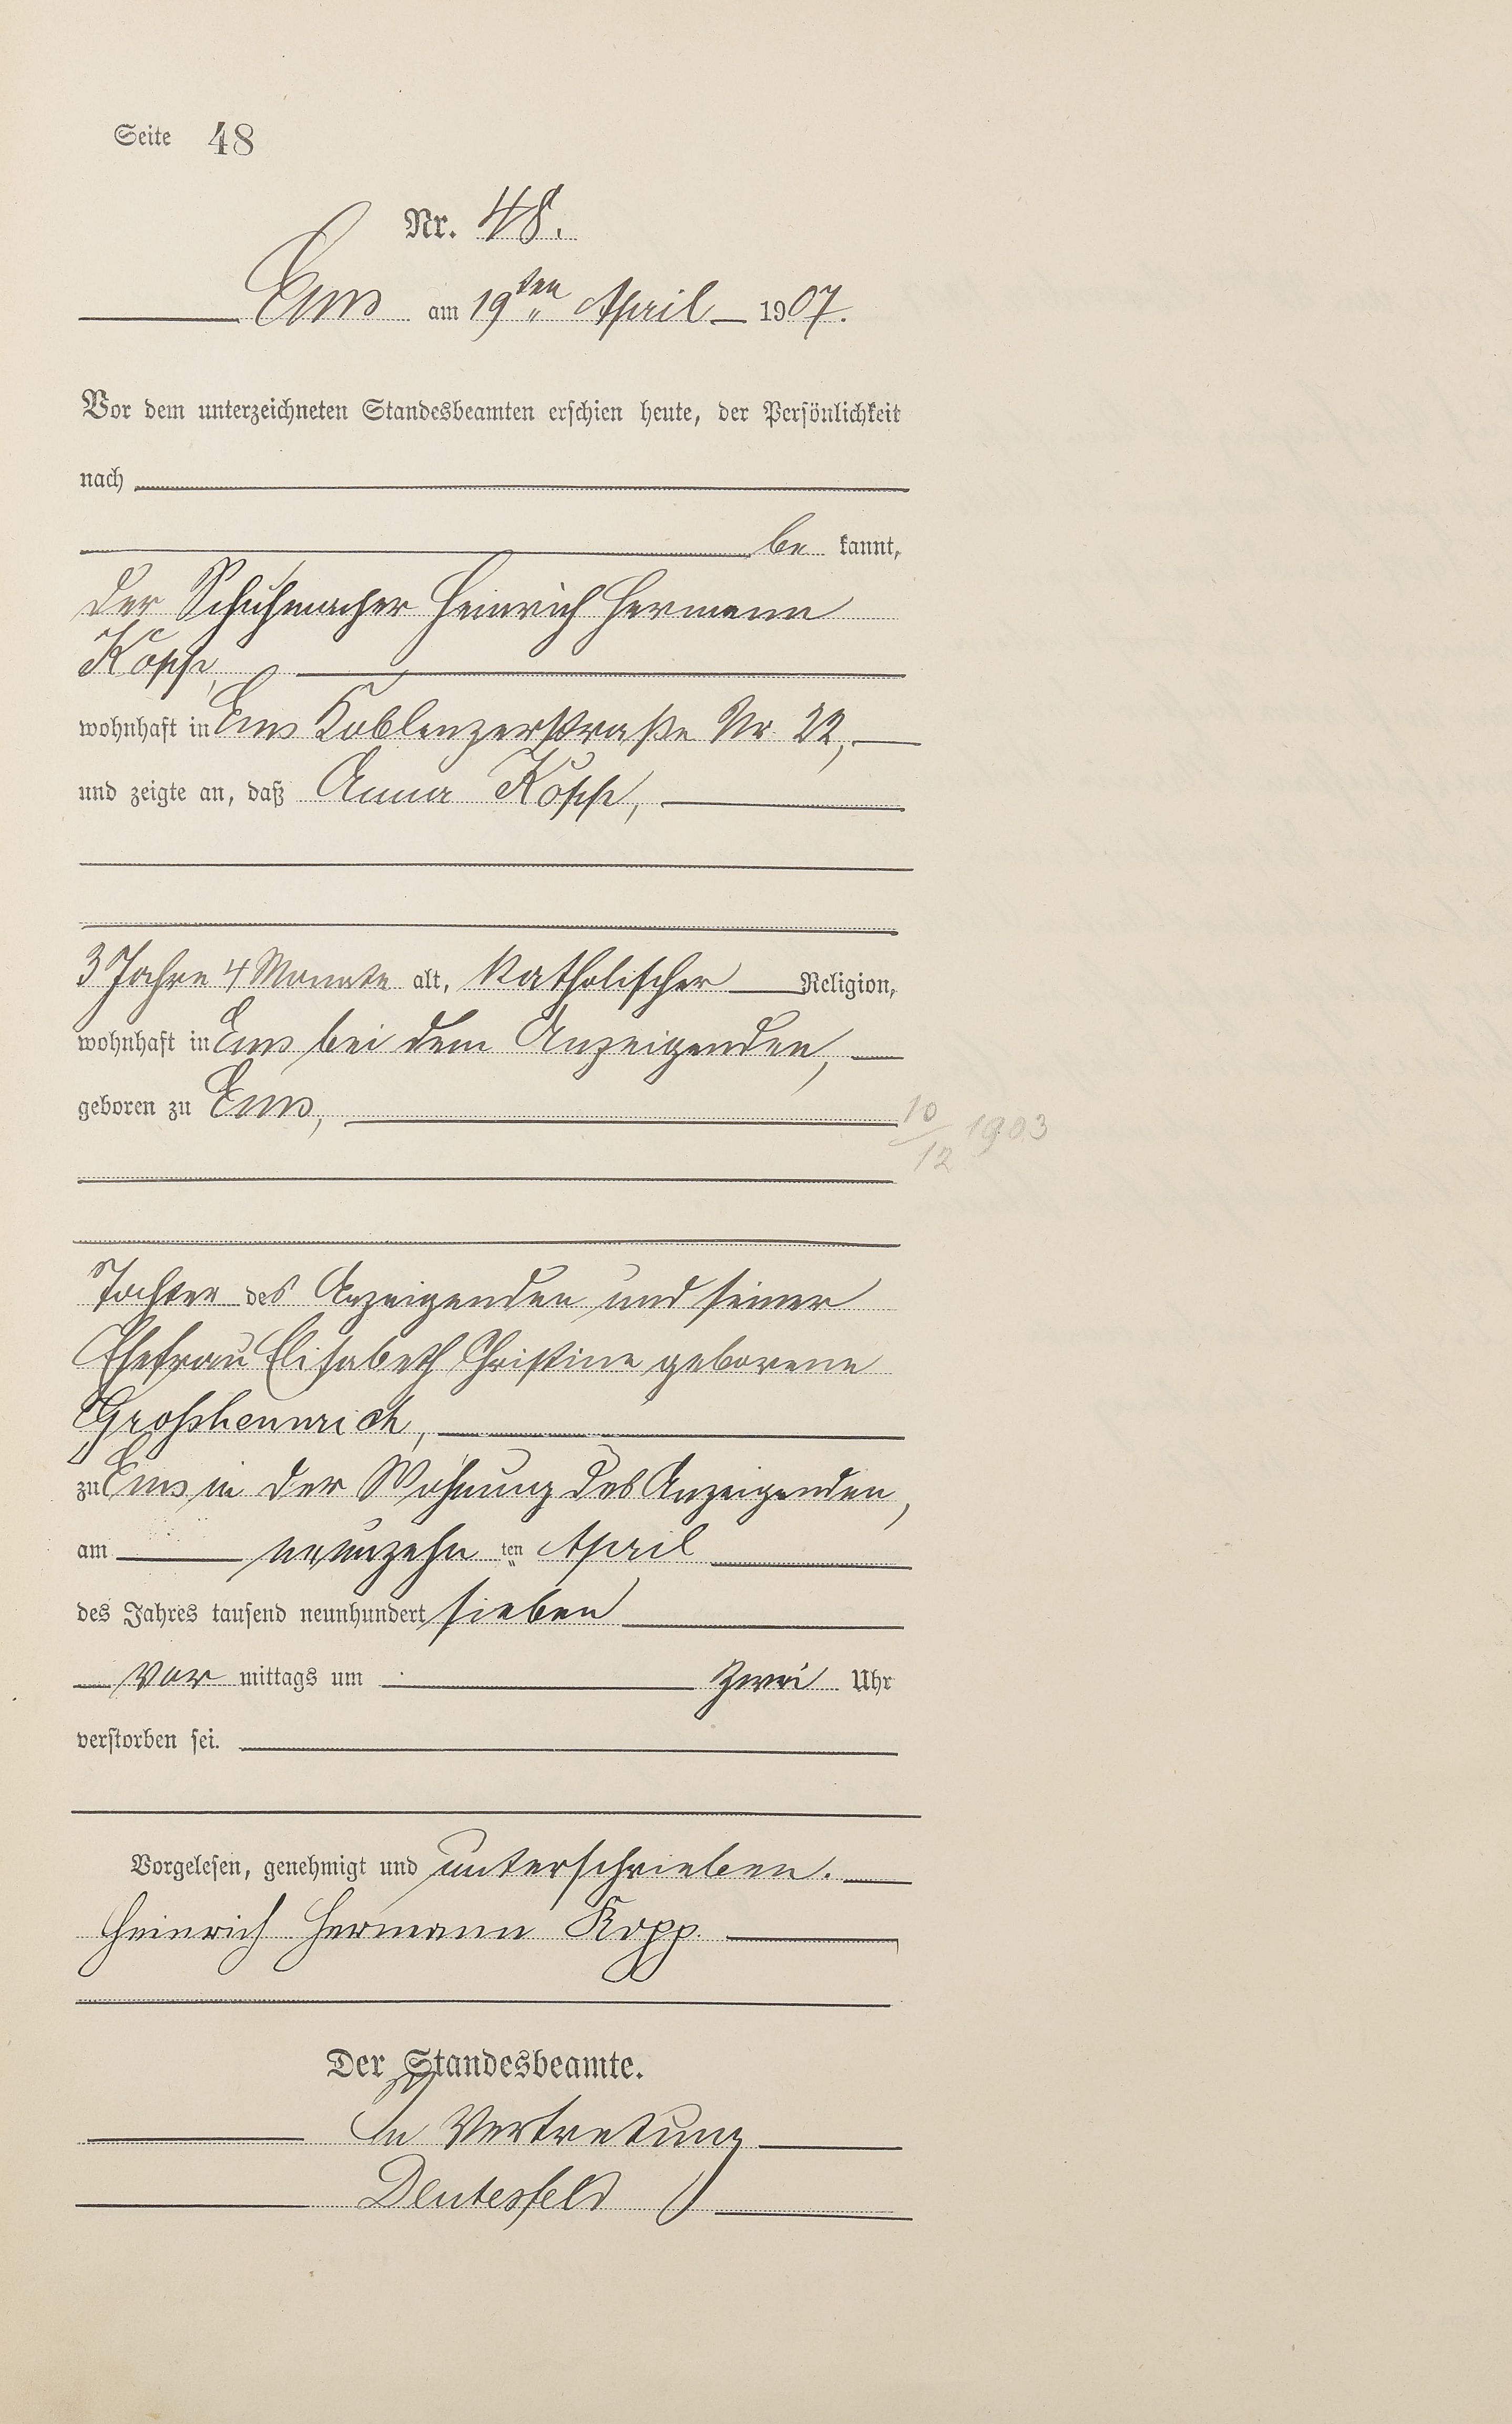 Seite 48
Nr. 48.
Ems am 19ten April 1907.
Vor dem unterzeichneten Standesbeamten erschien heute, der Persönlichkeit
nach
be kannt,
der Schuhmacher Heinrich Hermann
Kopp,
wohnhaft in Ems Koblenzerstraße Nr. 22,
und zeigte an, daß Anna Kopp,
3 Jahre 4 Monate alt, katholischer Religion,
wohnhaft in Ems bei dem Anzeigenden,
geboren zu Ems,
10/12 1903
Tochter des Anzeigenden und seiner
Ehefrau Elisabeth Christine geborene
Großhennrich,
zu Ems in der Wohnung des Anzeigenden,
am neunzehn ten April
des Jahres tausend neunhundert sieben
Vor mittags um zwei Uhr
verstorben sei.
Vorgelesen, genehmigt und unterschrieben.
Heinrich Hermann Kopp.
Der Standesbeamte.
In Vertretung
Deutesfeld